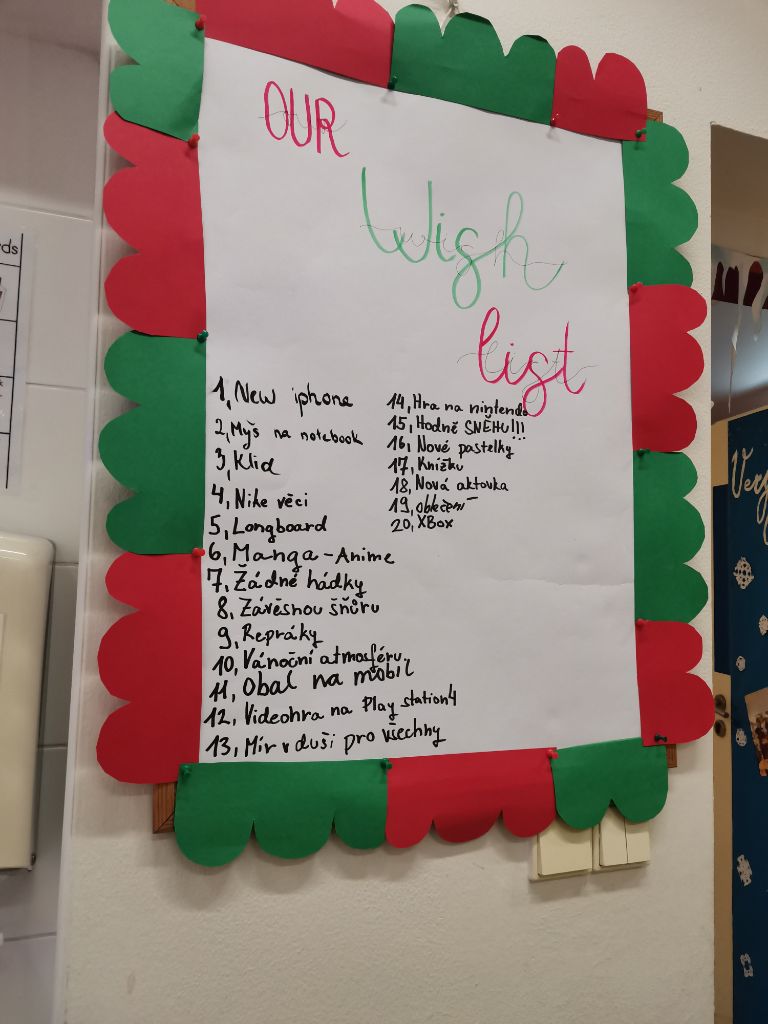 OUR
Wish
list
1, New iphone
2, Myš na notebook
3, Klid
4, Nike věci
5, Longboard
6, Manga-Anime
7, Žádné hádky
8, Závěsnou šňůru
9, Repráky
10, Vánoční atmosféru
11, Obal na mobil
12, Videohra na Play station4
13, Mír v duši pro všechny
14, Hra na nintendo
15, Hodně SNĚHU!!!
16, Nové pastelky
17, Knížku
18, Nová aktovka
19, oblečení
20, XBox